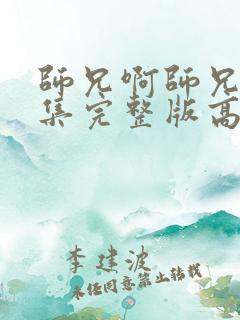 師兄啊師兄
集完整版高
李建波
未经同意禁止转载